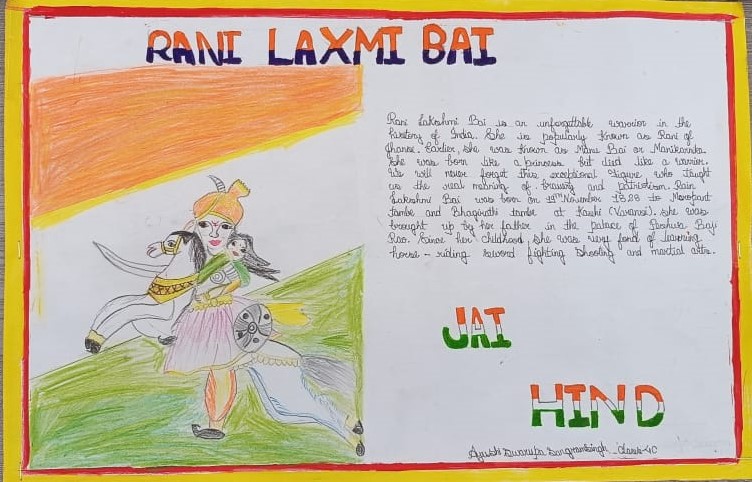 RANI LAXMI BAI
Rani Lakshmi Bai is an unforgettable warrior in the
history of India. She is popularly known as Rani of
Jhansi. Earlier, she was known as Manu Bai or Manikarnika.
She was born like a princess but died like a warrior.
We will never forget this exceptional figure who taught
us the real meaning of bravery and patriotism. Rain
Lakshmi Bai was born on 19th November 1828 to Moropant
Tambe and Bhagirathi tambe at Kashi (Varansi). she was
brought up by her father in the palace of Peshwa Baji
Rao. Since her childhood, she was very fond of learning
horse - riding sword fighting shooting and martial arts.
JAI
HIND
Ayushi Swarupa Sangramsingh Class-4C